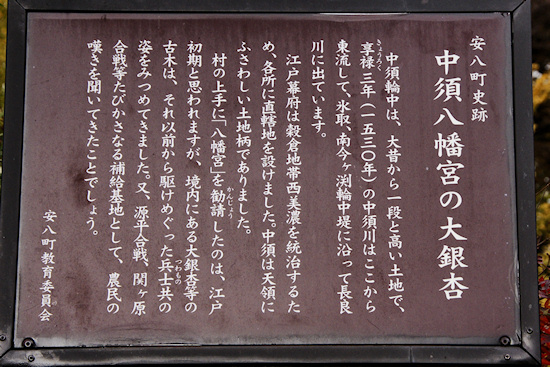 安八町史跡
中須八幡宮の大銀杏
中須輪中は、大昔から一段と高い土地で、
きょうろく
享禄三年(一五三〇年)の中須川はここから
東流して、氷取、南今ヶ渕輪中堤に沿って長良
川に出ています。
江戸幕府は穀倉地帯西美濃を統治するた
め、各所に直轄地を設けました。中須は天領に
ふさわしい土地柄でありました。
かんじょう
村の上手に「八幡宮」を勧請したのは、江戸
初期と思われますが、境内にある大銀杏等の
つわもの
古木は、それ以前から駆けめぐった兵士共の
姿をみつめてきました。又、源平合戦、関ヶ原
合戦等たびかさなる補給基地として、農民の
嘆きを聞いてきたことでしょう。
安八町教育委員会